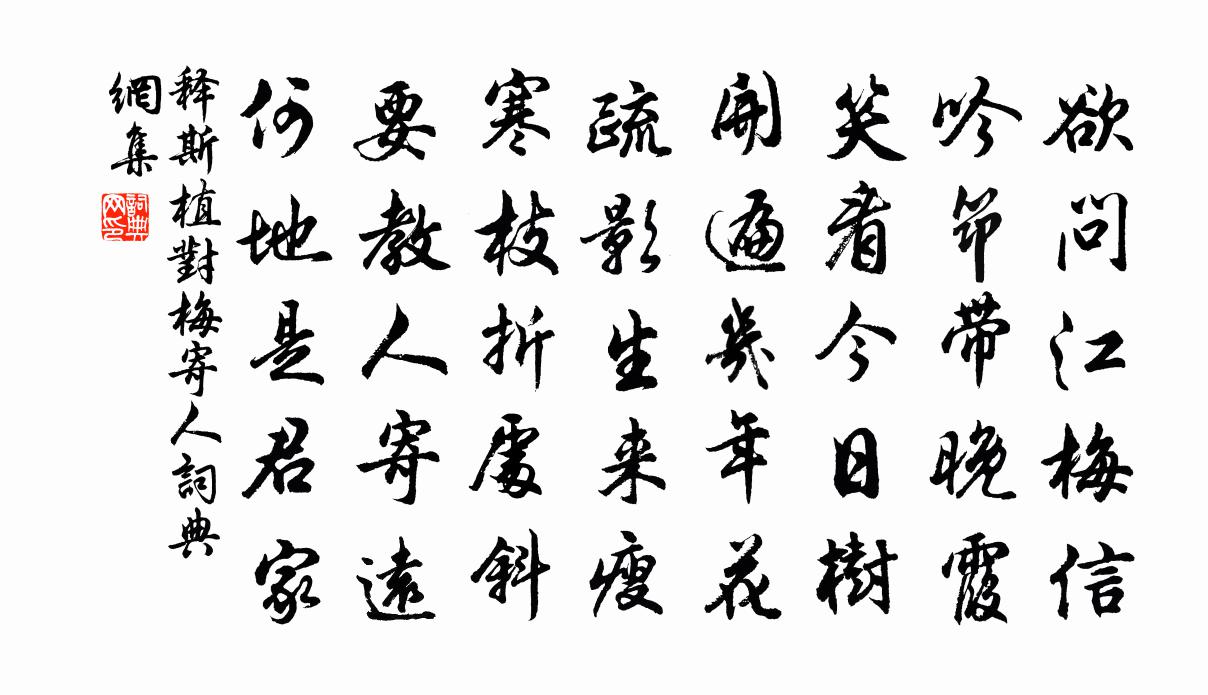 欲問江梅信
吟筇帶晚霞
笑看今日樹
開遍幾年花
疏影生来瘦
寒枝折處斜
要教人寄遠
何地是君家
释斯植對梅寄人詞典
網集
詞典网印